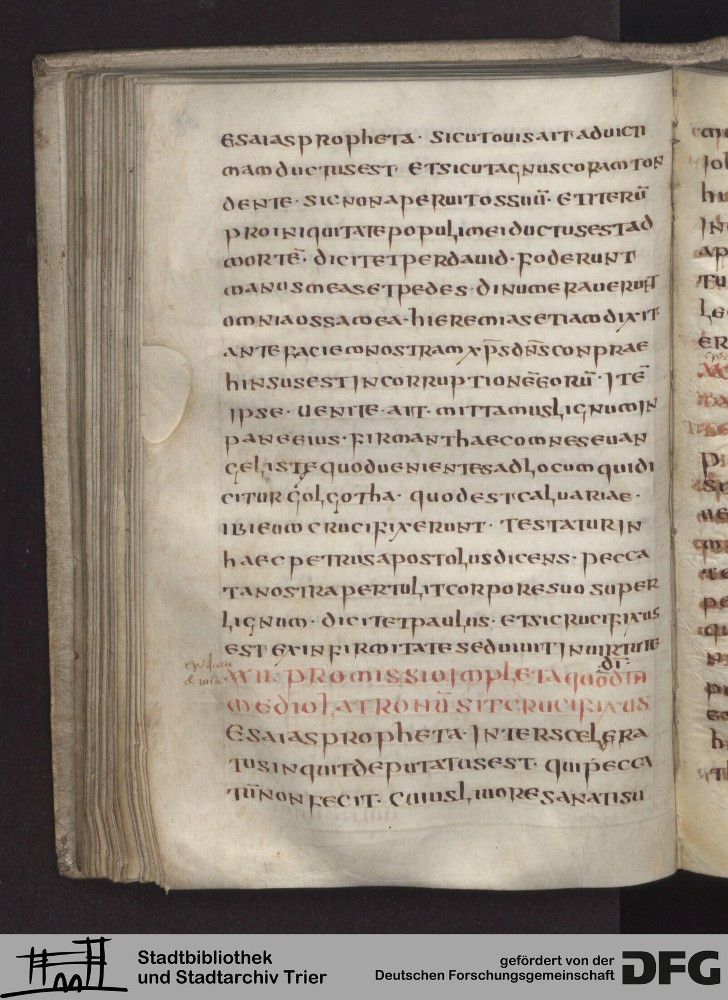 esaias propheta · sicut ouis ait ad uicti
mam ductus est · et sicut agnus coram ton
dente · sic non aperuit os suū · et iterū
pro iniquitate populi mei ductus est ad
mortē · dicit et per dauid · foderunt
manus meas et pedes · dinumerauerunt
omnia ossa mea · hieremias etiam dixit
ante faciem nostram xp̄s dn̄s conprae
hinsus est in corruptionē eorū · itē
ipse · uenite · ait · mittamus lignum in
pane eius · firmant haec omnes euan
gelistę quod uenientes ad locum qui di
citur golgotha · quod est caluariae ·
ibi eum crucifixerunt · testatur in
haec petrus apostolus dicens · pecca
ta nostra pertulit corpore suo super
lignum · dicit et paulus · et si crucifixus
est ex infirmitate sed uiuit in uirtute
di
promissio impleta quod in
medio latronū sit crucifixus
esaias propheta · inter scelera
tus inquit deputatus est · qui pecca
tū non fecit · cuius liuore sanati su
Stadtbibliothek
und Stadtarchiv Trier
gefördert von der
Deutschen Forschungsgemeinschaft
DFG